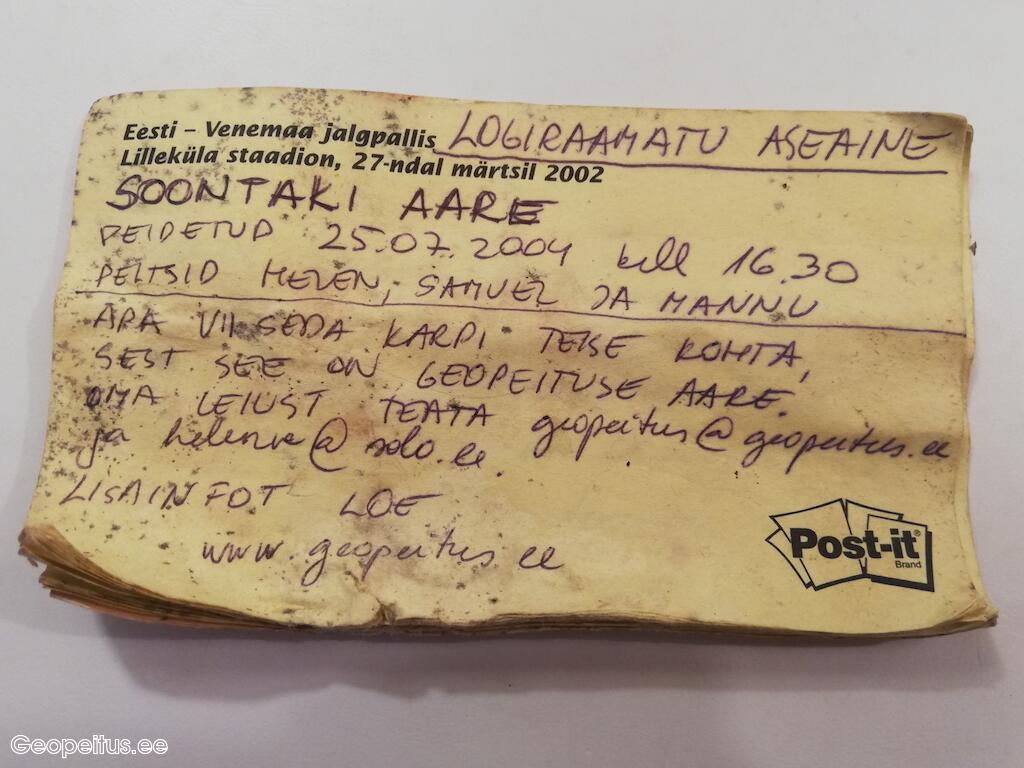 Eesti – Venemaa jalgpallis LOGIRAAMATU ASEAINE
Lilleküla staadion, 27-ndal märtsil 2002
SOONTAKI AARE
PEIDETUD 25.07.2004 kell 16.30
PEITSID HELEN, SAMUEL JA MANNU
ÄRA VII SEDA KARPI TEISE KOHTA,
SEST SEE ON GEOPEITUSE AARE.
OMA LEIUST TEATA geopeitus@geopeitus.ee
ja @solo.ee.
LISAINFOT LOE
www.geopeitus.ee
Post-it®
Brand
Geopeitus.ee